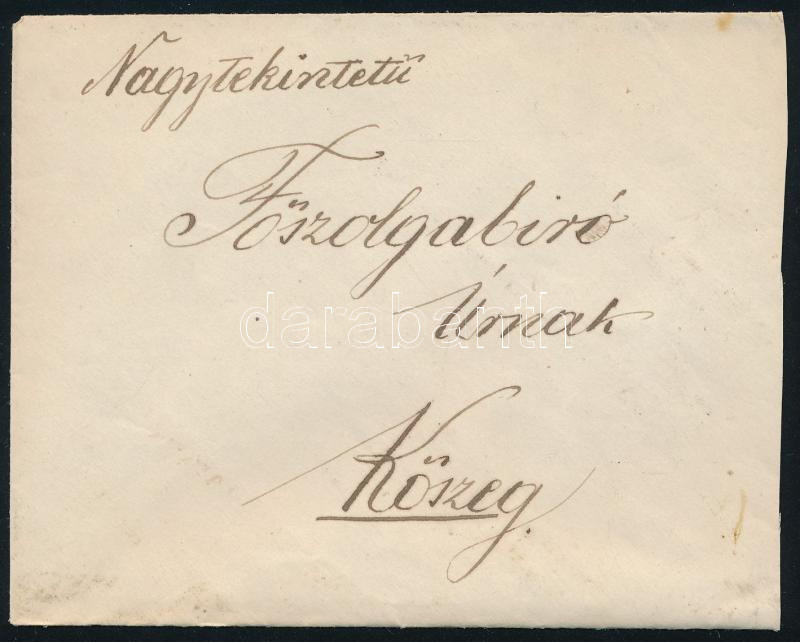 Nagytekintetű
Főszolgabiró
Úrnak
darabanth
Kőszeg.